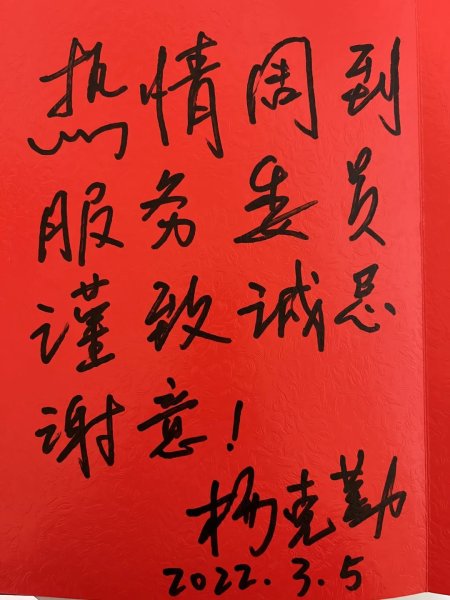 热情周到
服务委员
谨致诚恳
谢意!
杨克勤
2022.3.5